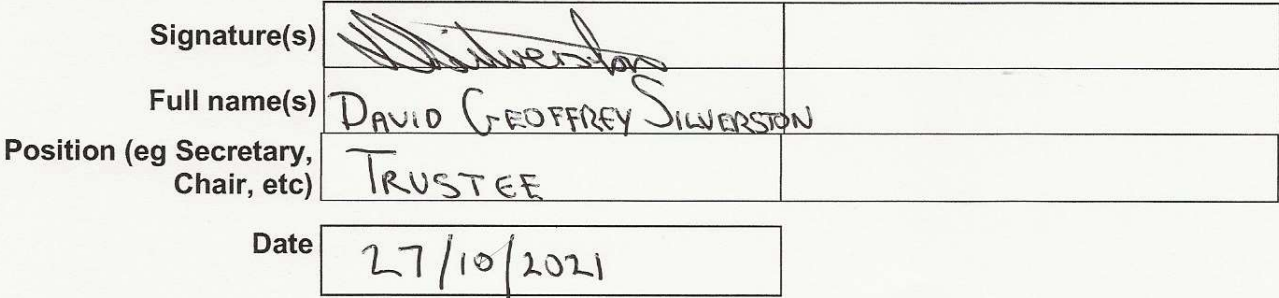 Signature(s) DSilverston
Full name(s) DAVID GEOFFREY SILVERSTON
Position (eg Secretary,
Chair, etc) TRUSTEE
Date 27/10/2021